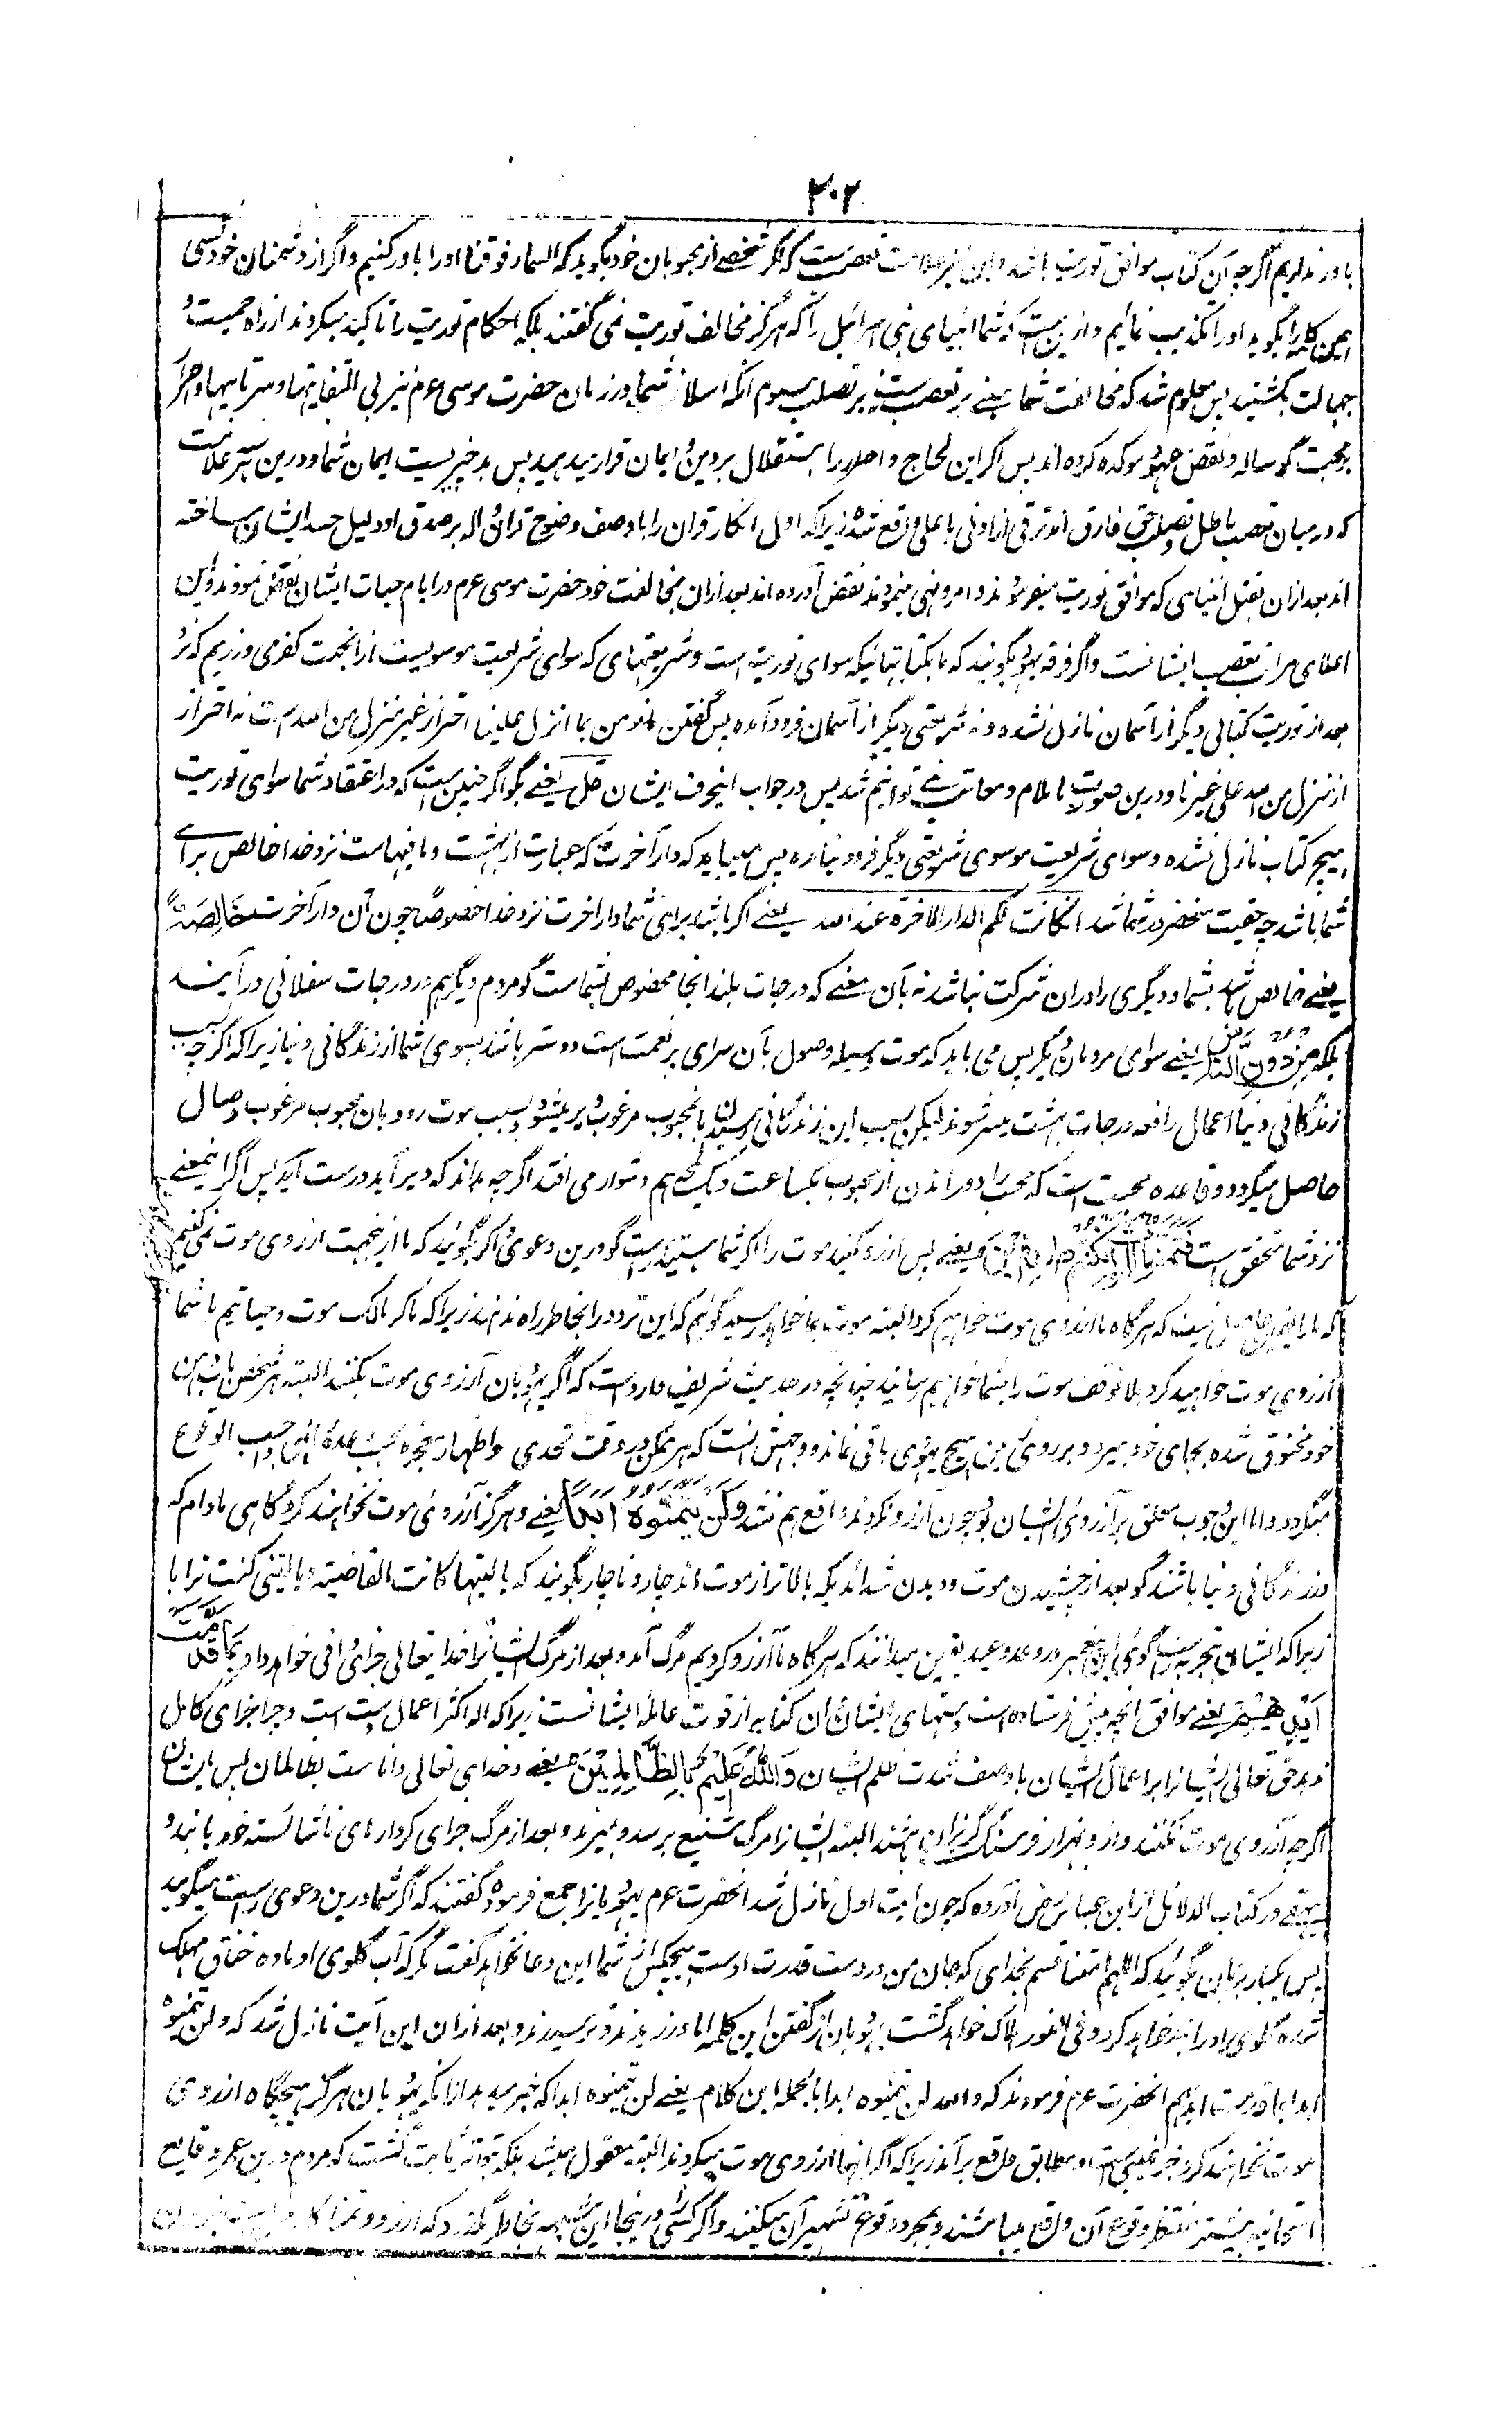 ۳۰۲
باور نداریم اگرچه آن کتاب موافق توریت باشد و این نیز علامت تعصب است که اگر شخصی از محبوبان خود بگوید که السماء فوقنا اورا باور کنیم و اگر از دشمنان خود کسی
همین کلمه را بگوید اورا تکذیب نمائیم و ازین است که شما انبیای بنی اسرائیل را که هرگز مخالف توریت نمی گفتند بلکه احکام توریت را تاکید میکردند از راه حمیت و
جهالت بکشتید پس معلوم شد که مخالفت شما مبنی بر تعصب است نه بر تصلب سیوم آنکه اسلاف شما در زمان حضرت موسی عم نیز بی التفاتیها و سرتابیها و
بر محبت گوساله و نقض عهود موکده کرده اند پس اگر این لجاج و اصرار را استقلال بر دین و ایمان قرار میدهید پس بد چیزیست ایمان شما و درین سه علامت
که درمیان تعصب باطل و تصلب حق فارق اند ترقی از ادنی باعلی واقع شده زیراکه اول انکار قران را با وصف وضوح قرائن داله بر صدق او دلیل حسد ایشان ساخته
اند بعد ازان بقتل انبیاء هی که موافق توریت میفرمودند و امر و نهی مینمودند نقض آورده اند بعد ازان مخالفت خود حضرت موسی عم در ایام حیات ایشان نقض نمودند و این
اعلای مراتب تعصب ایشانست و اگر فرقه یهود بگویند که ما بکتابهائیکه سوای توریت است و شریعتهای که سوای شریعت موسویست از انجهت کفر می ورزیم که نزد
بعد از توریت کتابی دیگر از آسمان نازل نشده و نه شریعتی دیگر از آسمان فرود آمده پس گفتن نؤمن بما انزل علینا احتراز از غیر منزل من الله است نه احتراز
از منزل من الله علی غیرنا و درین صورت ما ملام و معاتب نمی توانیم شد پس در جواب اینحرف ایشان قل یعنی بگو اگر چنین است که در اعتقاد شما سوای توریت
هیچ کتاب نازل نشده و سوای شریعت موسوی شریعتی دیگر فرود نیامده پس میباید که دار آخرت که عبارت از بهشت و ما فیها است نزد خدا خالص برای
شما باشد چه حقیت منحصر در شما شد ان کانت لکم الدار الاخرة عند الله یعنی اگر باشد برای شما دار اخرت نزد خدا خصوصًا چون آن دار آخرت خَالِصَةً
یعنی خالص باشد بشما و دیگری را دران شرکت نباشد نه بآن معنی که درجات بلند انجا مخصوص بشماست گو مردم دیگر هم در درجات سفلانی در آیند
بلکه مِنْ دُونِ النَّاسِ یعنی سوای مردمان دیگر پس می باید که موت وسیله وصول بآن سرای پر نعمت است دوستر باشد بسوی شما از زندگانی دنیا زیراکه اگرچه بسبب
زندگانی دنیا اعمال رافعه درجات بهشت میسر شوند لیکن بسبب این زندگانی رسیدن بانمحبوب مرغوب دیر میشود و بسبب موت رود بان محبوب مرغوب وصال
حاصل میگردد و قاعده محبت است که محب را دور ماندن از محبوب یکساعت و یک لمحه هم دشوار می افتد اگرچه بداند که دیر آید درست آید پس اگر اینمعنی
نزد شما متحقق است فَتَمَنَّوُا الْمَوْتَ إِنْ كُنْتُمْ صَادِقِينَ یعنی پس آرزو کنید موت را اگر شما هستید راست گو درین دعوی و اگر بگوئید که ما ازینجهت آرزوی موت نمی کنیم
که مارا یقین حاصل نیست که هرگاه ما آرزوی موت خواهیم کرد البته موت بما خواهد رسید گوئیم که این تردد را بخاطر راه ندهند زیراکه ما که مالک موت و حیاتیم با شما
آرزوی موت خواهید کرد بلا توقف موت را بشما خواهیم رسانید چنانچه در حدیث شریف وارد است که اگر یهودیان آرزوی موت بکنند البته هر شخص باب دهن
خود مخنوق شده بجای خود بمیرد و بر روی زمین هیچ یهودی باقی نماند و وجهش انست که هر ممکن در وقت تحدی و اظهار معجزه بحسب وعدهٔ الهی واجب الوقوع
میگردد و اما این وجوب معلق بر آرزوی ایشان بود چون آرزو نکردند واقع هم نشد وَلَنْ يَتَمَنَّوْهُ أَبَدًا یعنی و هرگز آرزوی موت نخواهند کرد گاهی مادام که
در زندگانی دنیا باشند گو بعد از چشیدن موت و دیدن شدائد یکه بالاتر از موت اند چار و ناچار بگویند که یا لیتها کانت القاضیة و یا لیتنی کنت ترابا
زیراکه ایشان بتجربه راست گوی این پیغمبر در وعد و وعید یقین میدانند که هرگاه ما آرزو کردیم مرگ آمد و بعد از مرگ ایشانرا خدا یتعالی جزای وافی خواهد داد بِمَا قَدَّمَتْ
أَيْدِيهِمْ یعنی موافق انچه پیش فرستاده است دستهای ایشان و آن کنایه از قوت عامله ایشانست زیراکه آله اکثر اعمال دست است و چرا جزای کامل
ندهد حق تعالی ایشانرا بر اعمال ایشان با وصف شدت ظلم ایشان وَاللَّهُ عَلِيمٌ بِالظَّالِمِينَ یعنی و خدای تعالی داناست بظالمان پس ایشان
اگرچه آرزوی موت نکنند و از و هزار فرسنگ گریزان باشند البته ایشانرا مرگ شنیع برسد و بمیرند و بعد از مرگ جزای کردارهای ناشائسته خود یابند و
بیهقی در کتاب الدلائل از ابن عباس رض آورده که چون ایت اول نازل شد انحضرت عم یهودیانرا جمع فرموده گفتند که اگر شما درین دعوی راست میگوئید
پس یکبار بزبان بگوئید که اللهم امتنا قسم بخدای که جان من در دست قدرت اوست هیچکس از شما این دعا نخواهد گفت مگر که آب گلوی او ماده خناق مهلک
شده گلوی او را بند خواهد کرد و فی الفور هلاک خواهد گشت یهودیان از گفتن این کلمه ابا ورزیدند و ترسیدند و بعد ازان این آیت نازل شد که ولن یتمنوه
ابدا بما قدمت ایدیهم انحضرت عم فرمودند که والله لن یتمنوه ابدا بالجمله این کلام یعنی لن یتمنوه ابدا که خبر میدهد ازانکه یهودیان هرگز هیچگاه آرزوی
موت نخواهند کرد خبر غیبی است و مطابق واقع برآمد زیراکه اگر اینها آرزوی موت میکردند البته منقول میشد بلکه بتواتر ثابت میگشت که مردم درین عمر وقایع
امتحانیه بیشتر منتظر وقوع آن واقع میباشند و بمجرد وقوع تشهیر آن میکنند و اگر کسی را درینجا این شبهه بخاطر بگذرد که آرزو و تمنا کار دل است